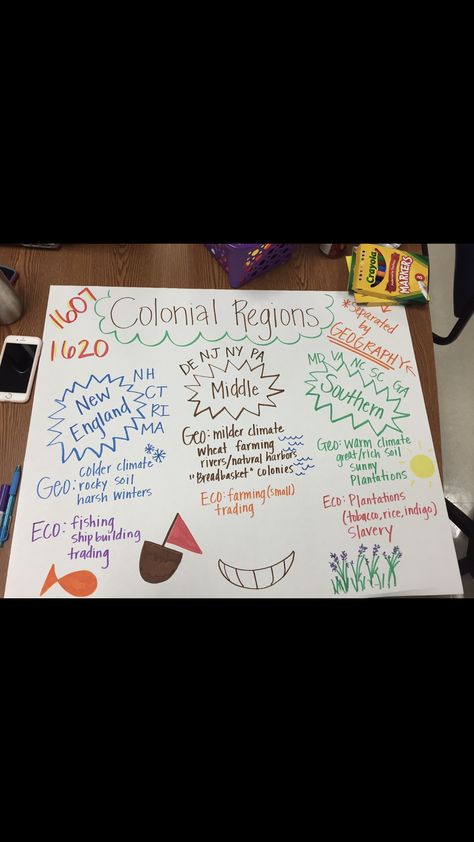 1607
1620
Colonial Regions
*Separated
by
GEOGRAPHY
Crayola
MARKERS
8
New
England
NH
CT
RI
MA
colder climate
Geo: rocky soil
harsh winters
Eco: fishing
shipbuilding
trading
DE NJ NY PA
Middle
Geo: milder climate
wheat farming
rivers/natural harbors
"Breadbasket" colonies
Eco: farming (small)
trading
MD VA NC SC GA
Southern
Geo: warm climate
great/rich soil
sunny
Plantations
Eco: Plantations
(tobacco, rice, indigo)
Slavery